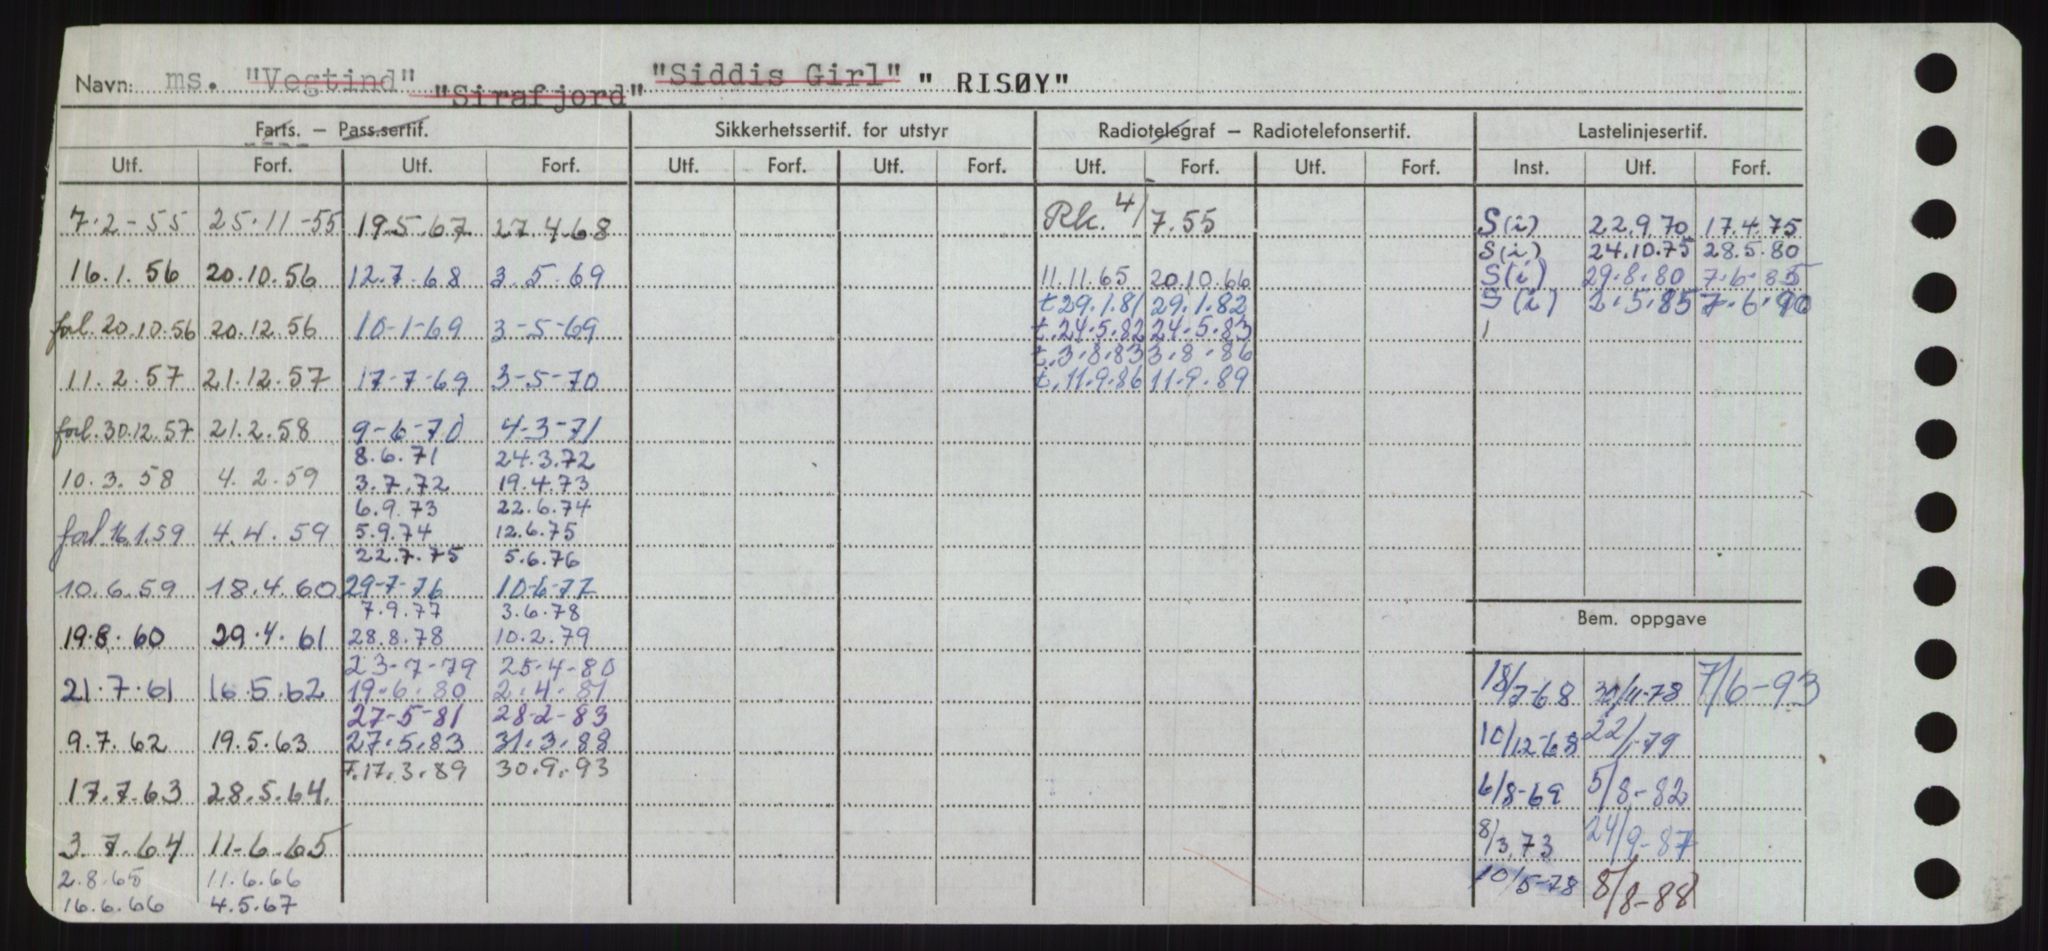 Navn: ms. "Vegtind" "Sirafjord" "Siddis Girl" " RISØY"
Farts. – Pass.sertif. Sikkerhetssertif. for utstyr Radiotelegraf – Radiotelefonsertif. Lastelinjesertif.
Utf. Forf. Utf. Forf. Utf. Forf. Utf. Forf. Utf. Forf. Utf. Forf. Inst. Utf. Forf.
7.2-55 25.11-55 19.5.67 27.4.68 Rk. 4/7.55 S(i) 22.9.70 17.4.75
S(i) 24.10.75 28.5.80
16.1.56 20.10.56 12.7.68 3.5.69 11.11.65 20.10.66 S(i) 29.8.80 7.6.85
t 29.1.81 29.1.82 S(i) 2.5.85 7.6.90
forl. 20.10.56 20.12.56 10-1-69 3-5-69 t.24.5.82 24.5.83
t.3.8.83 3.8.86
11.2.57 21.12.57 17-7-69 3-5-70 t.11.9.86 11.9.89
forl. 30.12.57 21.2.58 9-6-70 4-3-71
8.6.71 24.3.72
10.3.58 4.2.59 3.7.72 19.4.73
6.9.73 22.6.74
forl 16.1.59 4.4.59 5.9.74 12.6.75
22.7.75 5.6.76
10.6.59 18.4.60 29-7-76 10-6-77
7.9.77 3.6.78
Bem. oppgave
19.8.60 29.4.61 28.8.78 10.2.79
23-7-79 25-4-80
21.7.61 16.5.62 19.6.80 2.4.81 18/7-68 30/11-78 7/6-93
27-5-81 28-2-83
9.7.62 19.5.63 27.5.83 31.3.88 10/12-68 22/1-79
7.17.3.89 30.9.93
17.7.63 28.5.64. 6/8-69 5/8-82
3.7.64 11-6-65 8/3.73 24/9-87
2.8.65 11.6.66 10/5-78 8/8-88
16.6.66 4.5.67